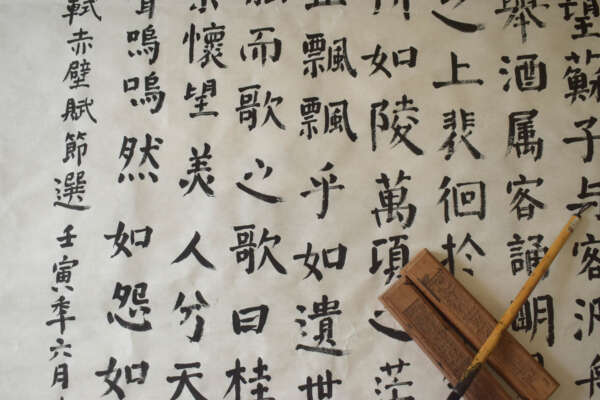 望蘇子与客泛舟
舉酒属客誦明
之上裴徊於
所如陵萬頃之茫
止飄飄乎如遺世
而歌之歌曰桂
懷望美人兮天
嗚嗚然如怨如
軾赤壁賦節選 壬寅年六月